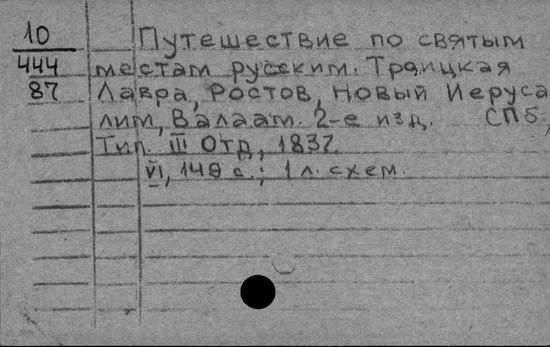 10 Путешествие по святым
444 местам русским. Троицкая
87 Лавра, Ростов, Новый Иеруса
лим, Валаам. 2-е изд. СПб,
Тип. III Отд, 1837.
VI, 149 с.; 1 л. схем.